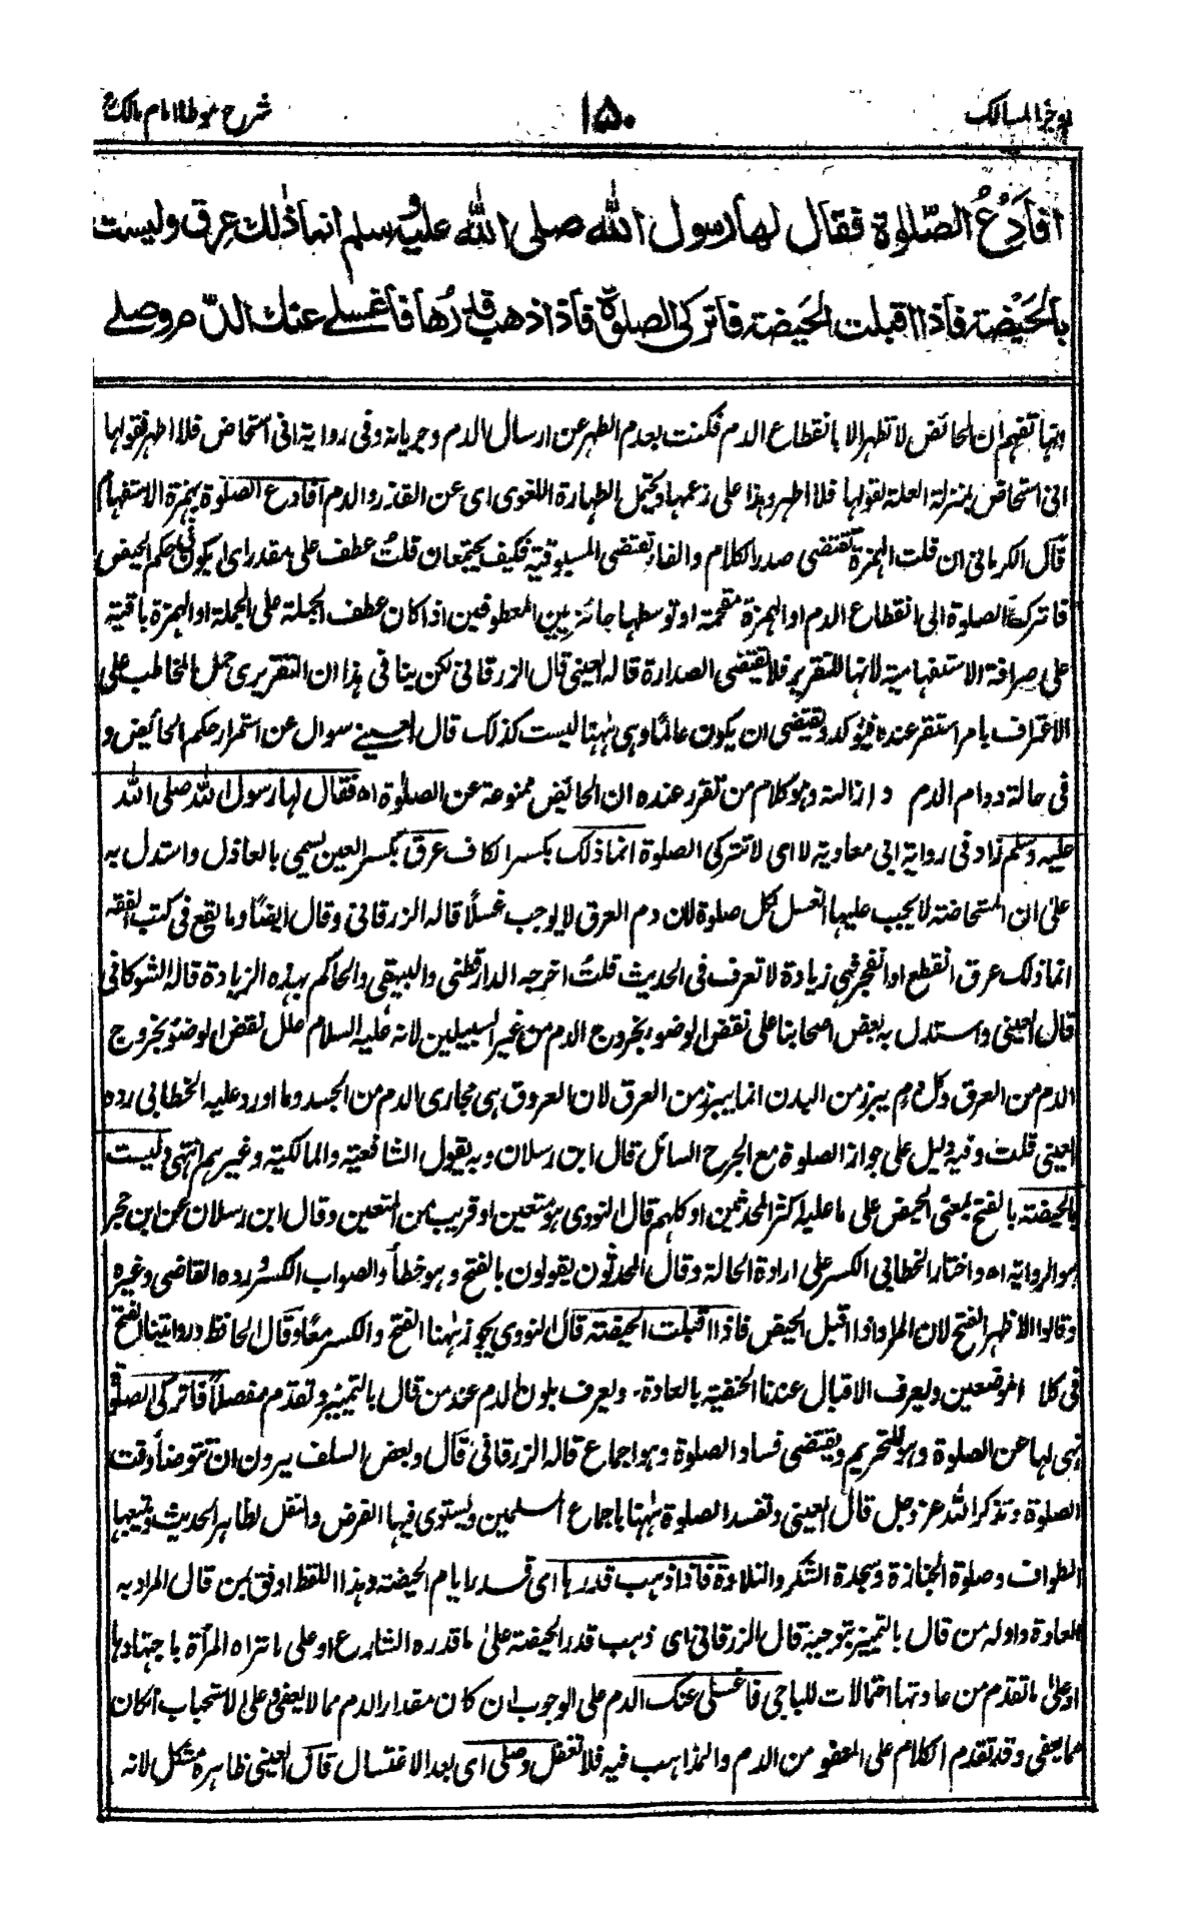 اوجز المسالك ١٥٠ شرح موطا امام مالك
افأدع الصلوة فقال لها رسول الله صلى الله عليه وسلم انما ذلك عرق وليست
بالحيضة فاذا اقبلت الحيضة فاتركى الصلوة فاذا ذهب قدرها فاغسلي عنك الدم وصلي
ان الحائض لا تطهر الا بانقطاع الدم فكنت بعدم الطهر عن ارسال الدم وجريانه وفى رواية انى استحاض فلا اطهر فقولها
انى استحاض بمنزلة العلة لقولها فلا اطهر وهذا على زعمها ويحتمل الطهارة اللغوى اى عن القذر والدم افأدع الصلوة بهمزة الاستفهام
قال الكرمانى ان قلت الهمزة تقتضى صدر الكلام والفاء تقتضى المسبوقية فكيف يجتمعان قلت عطف على مقدر اى ايكون لى حكم الحيض
فاترك الصلوة الى انقطاع الدم او الهمزة مقحمة او توسطها جائز بين المعطوفين اذا كان عطف الجملة على الجملة او الهمزة باقية
على صرافة الاستفهامية لانها للتقرير فلا تقتضى الصدارة قاله العينى قال الزرقانى لكن ينافى هذا ان التقريرى حمل المخاطب على
الاعتراف بامر استقر عنده فيؤكد ويقتضى ان يكون عالما وهى ههنا ليست كذلك قال العينى سوال عن استمرار حكم الحائض و
فى حالة دوام الدم و ازالته وهو كلام من تقرر عنده ان الحائض ممنوعة عن الصلوة اه فقال لها رسول الله صلى الله
عليه وسلم زاد فى رواية ابى معاوية لا اى لا تتركى الصلوة انما ذلك بكسر الكاف عرق بكسر العين يسمى بالعاذل واستدل به
على ان المستحاضة لا يجب عليها الغسل لكل صلوة لان دم العرق لا يوجب غسلا قاله الزرقانى وقال ايضا وما يقع فى كتب الفقه
انما ذلك عرق انقطع او انفجر فهى زيادة لا تعرف فى الحديث قلت اخرجه الدارقطنى والبيهقى والحاكم بهذه الزيادة قاله الشوكانى
قال العينى واستدل به بعض اصحابنا على نقض الوضوء بخروج الدم من غير السبيلين لانه عليه السلام علل نقض الوضوء بخروج
الدم من العرق وكل دم يبرز من البدن انما يبرز من العرق لان العروق هى مجارى الدم من الجسد وما اورد عليه الخطابى رده
العينى قلت وفيه دليل على جواز الصلوة مع الجرح السائل قال ابن رسلان وبه يقول الشافعية والمالكية وغيرهم انتهى وليست
بالحيضة بالفتح بمعنى الحيض على ما عليه اكثر المحدثين او كلهم قال النووى هو متعين او قريب من المتعين وقال ابن رسلان عن ابن حجر
هو الرواية اه واختار الخطابى الكسر على ارادة الحالة وقال المحدثون يقولون بالفتح وهو خطأ والصواب الكسر ورده القاضى وغيره
وقالوا الاظهر الفتح لان المراد اذا اقبل الحيض فاذا اقبلت الحيضة قال النووى يجوز ههنا الفتح والكسر معا وقال الحافظ روايتنا الفتح
فى كلا الموضعين ويعرف الاقبال عندنا الحنفية بالعادة ويعرف بلون الدم عند من قال بالتميز وتقدم مفصلا فاتركى الصلوة
نهى لها عن الصلوة وهو للتحريم ويقتضى فساد الصلوة وهو اجماع قاله الزرقانى قال وبعض السلف يرون ان تتوضأ وقت
الصلوة وتذكر الله عز وجل قال العينى وتفسد الصلوة ههنا باجماع المسلمين ويستوى فيها الفرض والنفل لظاهر الحديث ويتبعها
الطواف وصلوة الجنازة وسجدة الشكر والتلاوة فاذا ذهب قدرها اى قدر ايام الحيضة وهذا اللفظ اوفق بمن قال المراد به
العادة واوله من قال بالتميز بتوجيه قال الزرقانى اى ذهب قدر الحيضة على ما قدره الشارع او على ما تراه المرأة باجتهادها
او على ما تقدم من عادتها احتمالات للباجى فاغسلى عنك الدم على الوجوب ان كان مقدار الدم مما لا يعفى وعلى الاستحباب ان كان
مما يعفى وقد تقدم الكلام على العفو من الدم والمذاهب فيه فلا تغفل وصلى اى بعد الاغتسال قال العينى ظاهره مشكل لانه